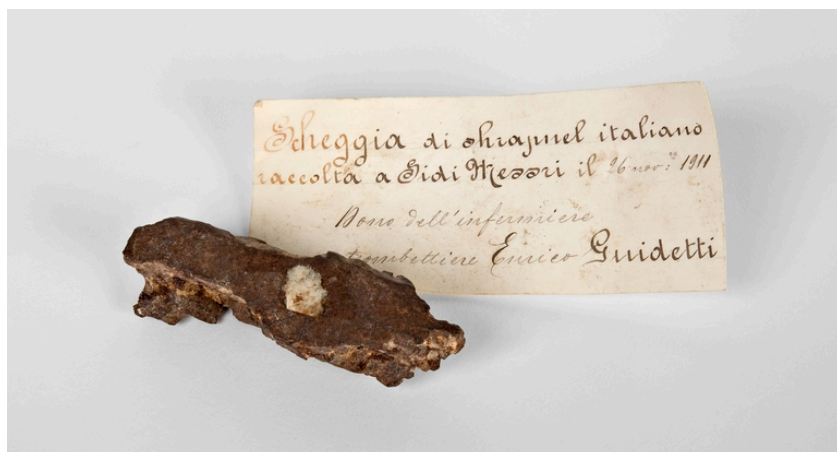 Scheggia di shrapnel italiano
raccolta a Sidi Messri il 26 nov. 1911
Dono dell'infermiere
trombettiere Enrico Guidetti